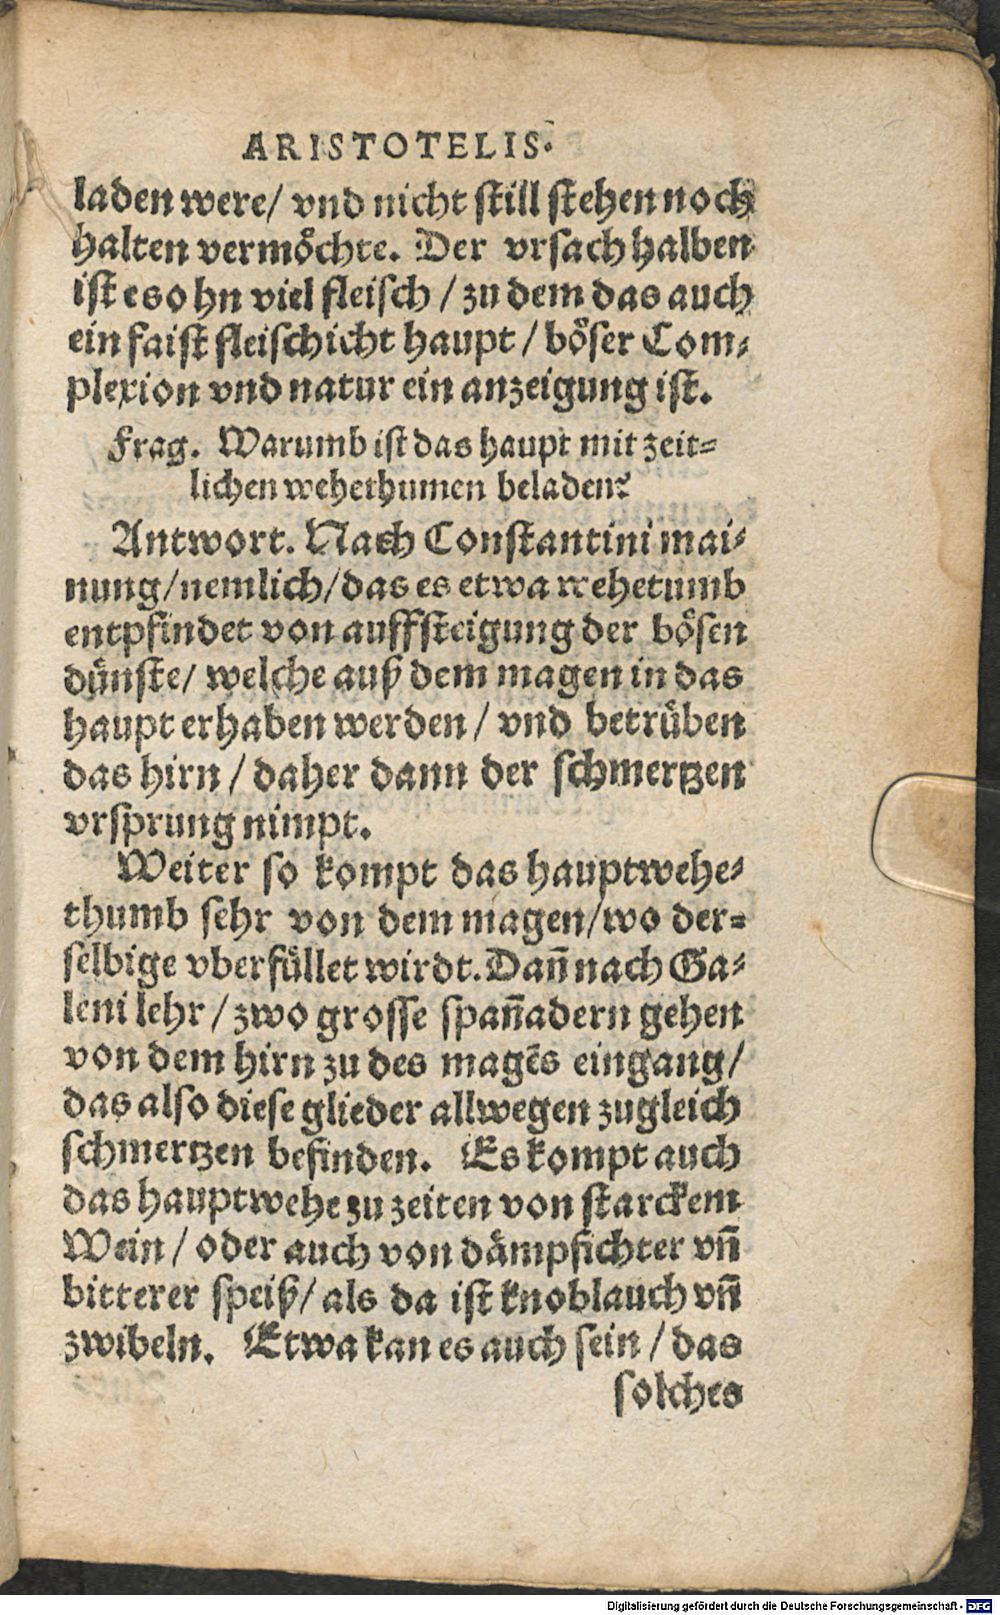 ARISTOTELIS.
laden were/ vnd nicht still stehen noch
halten vermöchte. Der vrsach halben
ist es ohn viel fleisch / zu dem das auch
ein faist fleischicht haupt / böser Com-
plexion vnd natur ein anzeigung ist.
Frag. Warumb ist das haupt mit zeit-
lichen wehethumen beladen?
Antwort. Nach Constantini mai-
nung/nemlich/das es etwa wehetumb
entpfindet von auffsteigung der bösen
dünste/ welche auß dem magen in das
haupt erhaben werden / vnd betrüben
das hirn / daher dann der schmertzen
vrsprung nimpt.
Weiter so kompt das hauptwehe-
thumb sehr von dem magen/wo der-
selbige vberfüllet wirdt. Dañ nach Ga-
leni lehr / zwo grosse spañadern gehen
von dem hirn zu des magẽs eingang/
das also diese glieder allwegen zugleich
schmertzen befinden. Es kompt auch
das hauptwehe zu zeiten von starckem
Wein / oder auch von dämpfichter vñ
bitterer speiß/ als da ist knoblauch vñ
zwibeln. Etwa kan es auch sein / das
solches
Digitalisierung gefördert durch die Deutsche Forschungsgemeinschaft - DFG